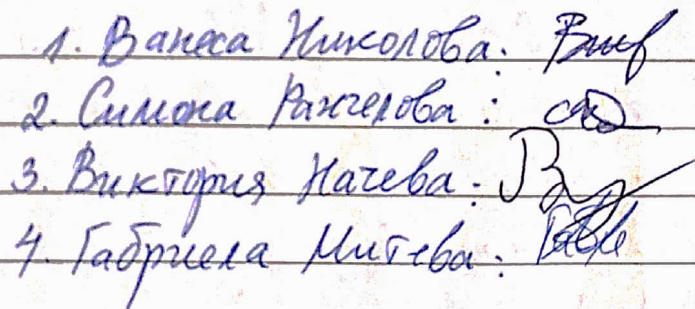 1. Ванеса Николова:
2. Симона Ранчелова:
3. Виктория Начева:
4. Габриела Митева: